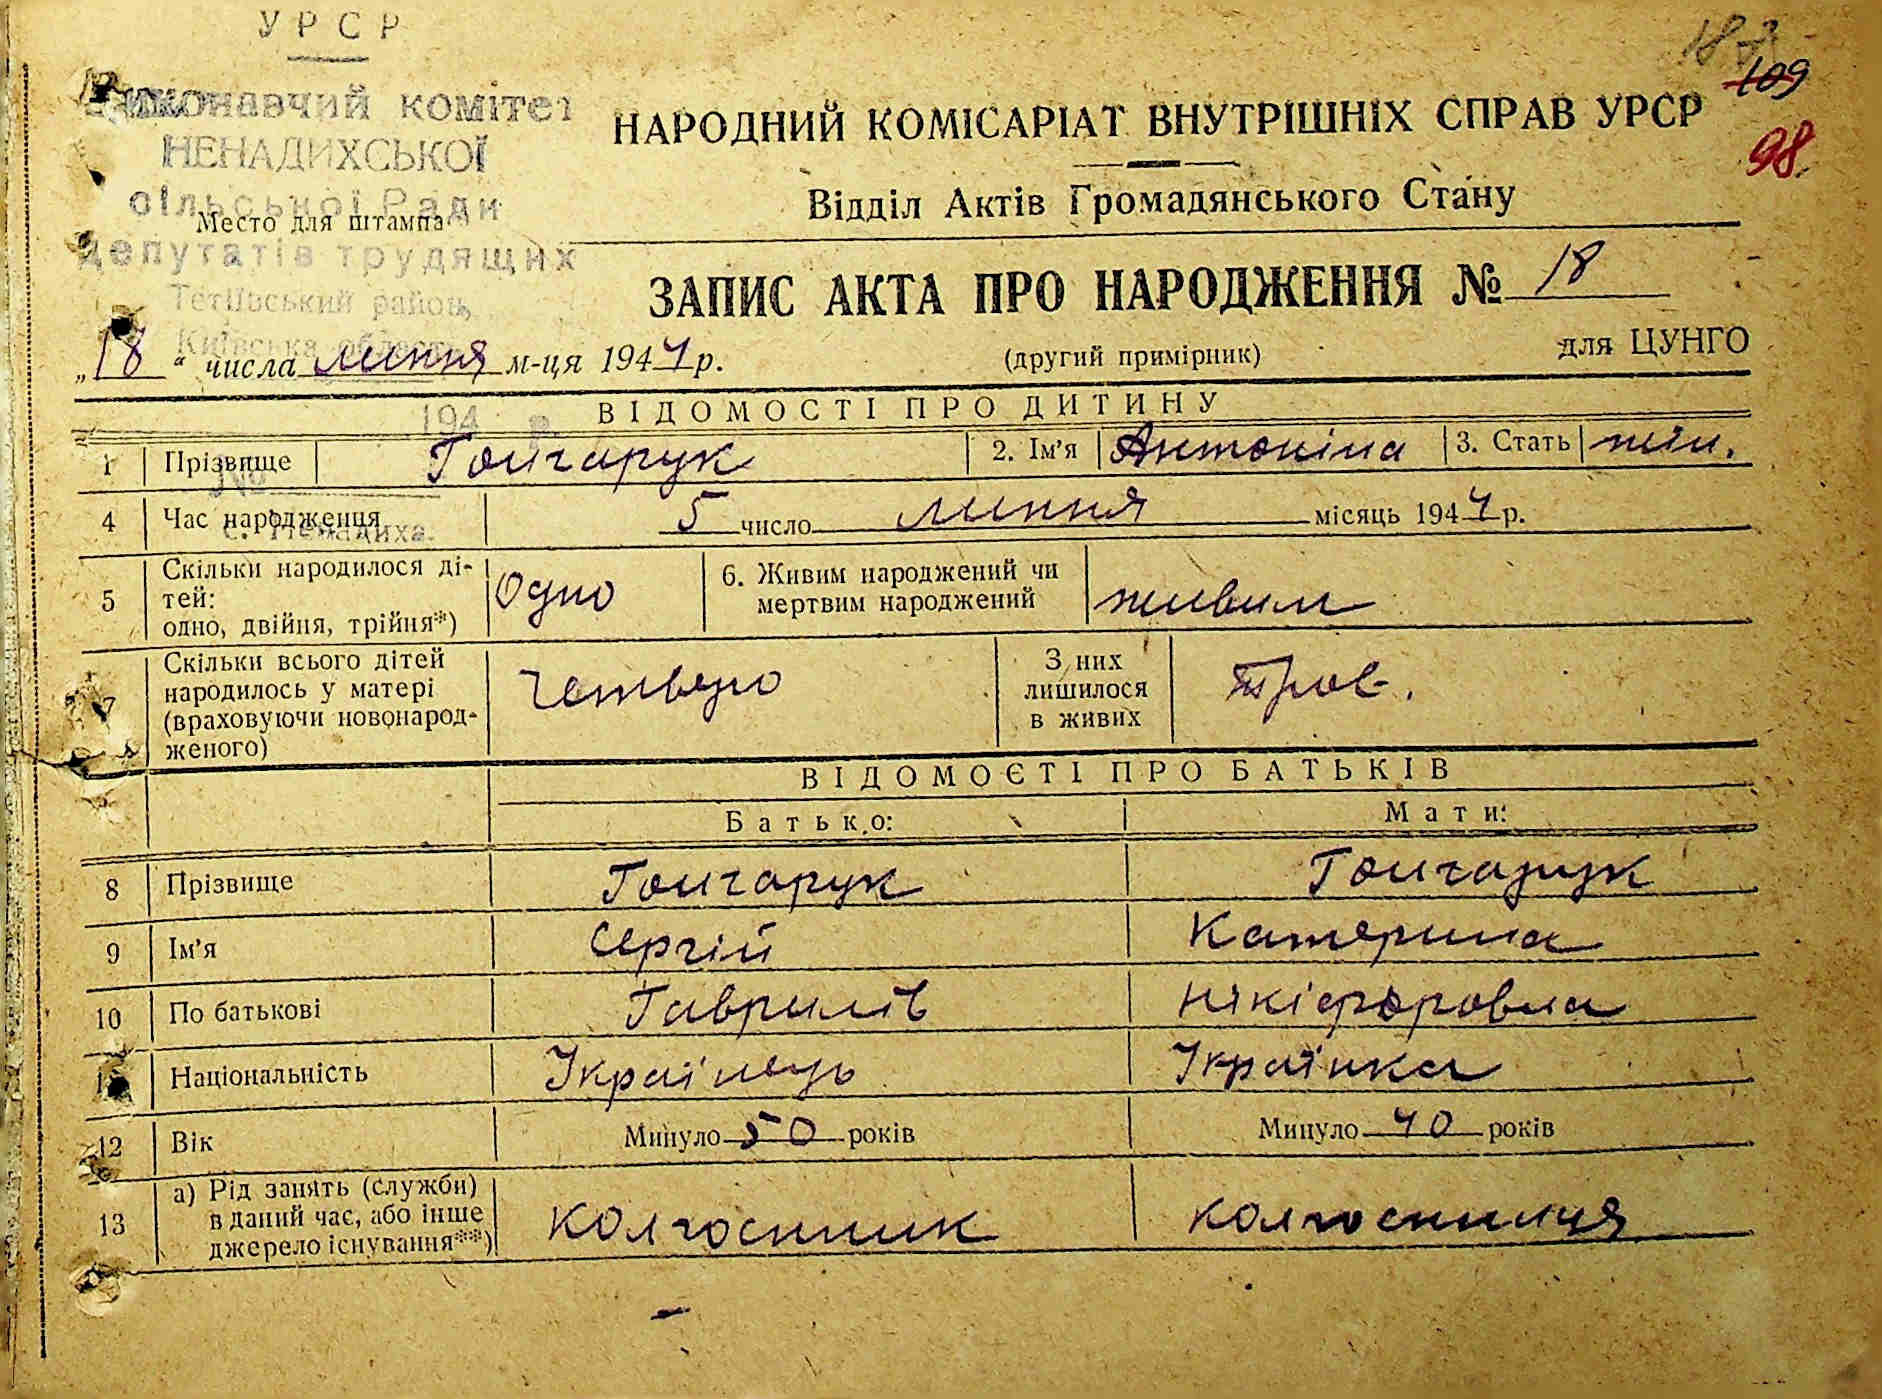 УРСР
Виконавчий комітет
НЕНАДИХСЬКОЇ
сільської Ради
Место для штампа
депутатів трудящих
Тетіївський район,
Київська область
194 р.
№
с. Ненадиха.
109
98.
НАРОДНИЙ КОМІСАРІАТ ВНУТРІШНІХ СПРАВ УРСР
Відділ Актів Громадянського Стану
ЗАПИС АКТА ПРО НАРОДЖЕННЯ № 18
„18“ числа липня м-ця 1944 р.
(другий примірник)
для ЦУНГО
ВІДОМОСТІ ПРО ДИТИНУ
1 Прізвище Гончарук 2. Ім'я Антоніна 3. Стать жін.
4 Час народження 5 число липня місяць 1944 р.
5 Скільки народилося ді-
тей:
одно, двійня, трійня*)
Одно
6. Живим народжений чи
мертвим народжений
живим
7 Скільки всього дітей
народилось у матері
(враховуючи новонарод-
женого)
Четверо
З них
лишилося
в живих
ВІДОМОЄТІ ПРО БАТЬКІВ
Батько: Мати:
8 Прізвище Гончарук Гончарук
9 Ім'я Сергій Катерина
10 По батькові Гаврилів Нікіфоровна
11 Національність Українець Українка
12 Вік Минуло 50 років Минуло 40 років
13 а) Рід занять (служби)
в даний час, або інше
джерело існування**)
колгоспник колгоспниця